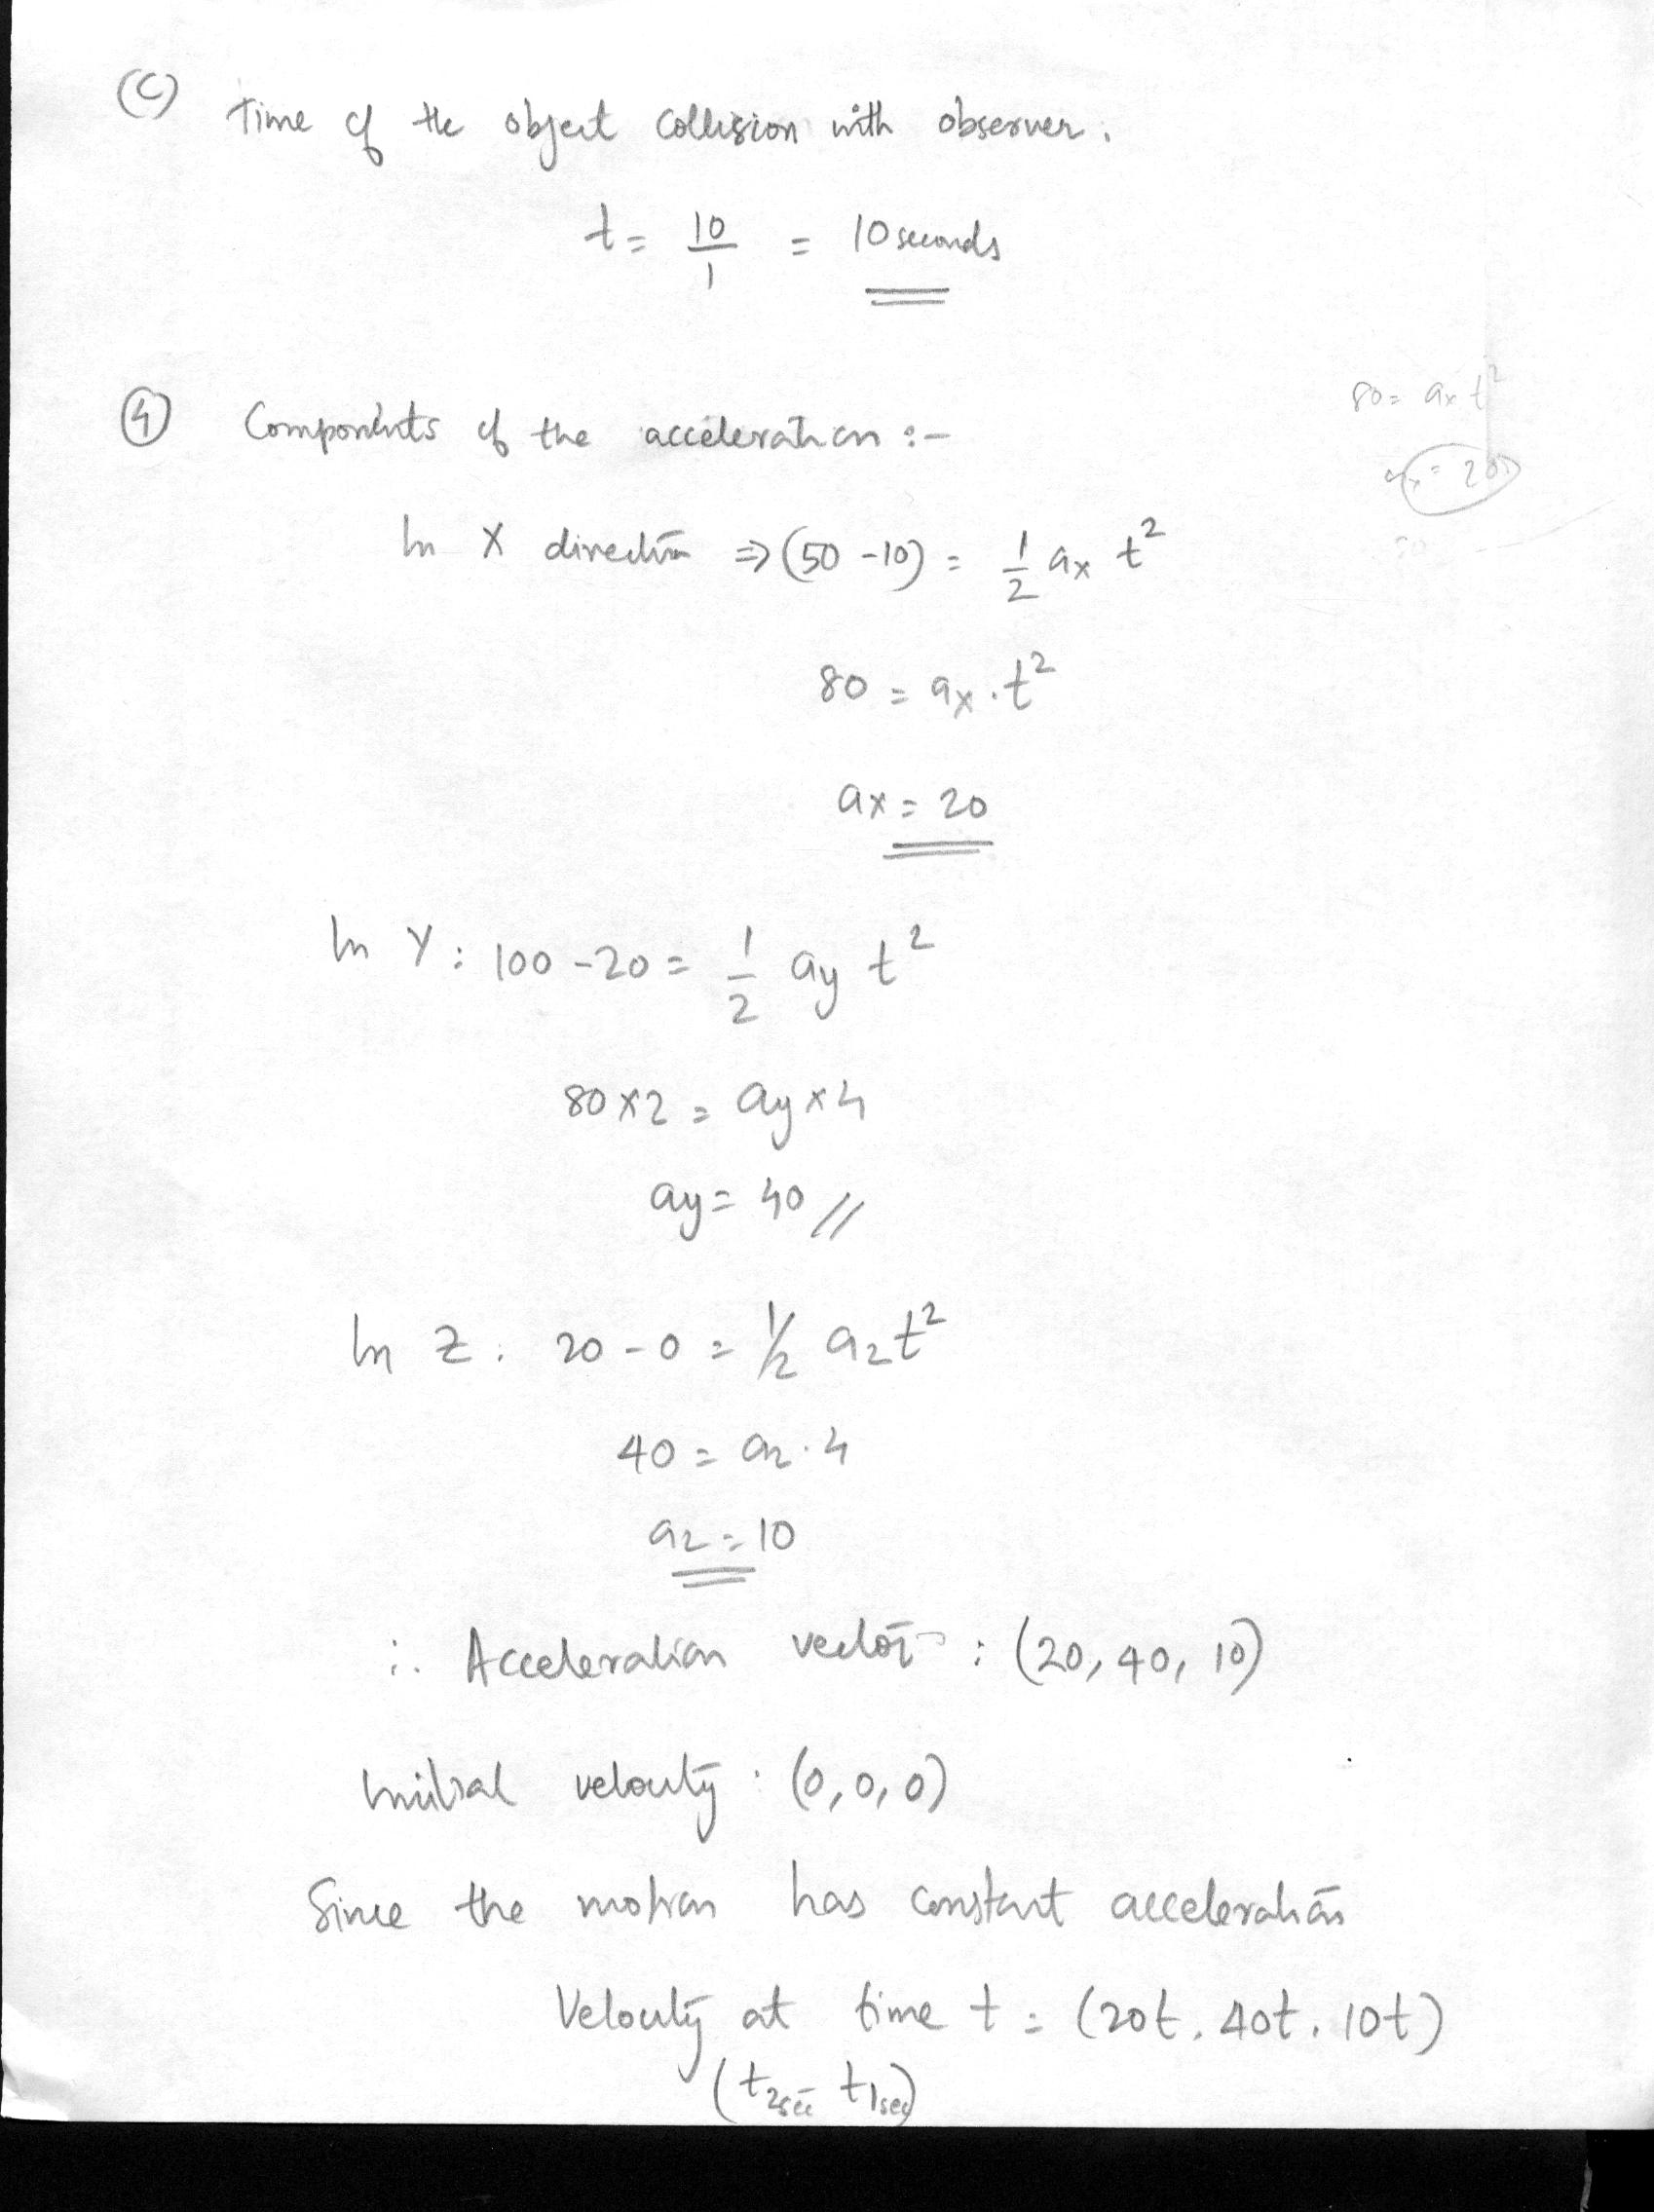 (C) Time of the object collision with observer.
t = 10/1 = 10 seconds
80 = ax t²
(4) Components of the acceleration :-
ax = 20
In X direction ⇒ (50 - 10) = 1/2 ax t²
80 = ax . t²
ax = 20
In Y : 100 - 20 = 1/2 ay t²
80 x 2 = ay x 4
ay = 40 //
In Z . 20 - 0 = 1/2 az t²
40 = az . 4
az = 10
∴ Acceleration vector : (20, 40, 10)
Initial velocity : (0, 0, 0)
Since the motion has constant acceleration
Velocity at time t = (20t, 40t, 10t)
(t2sec t1sec)